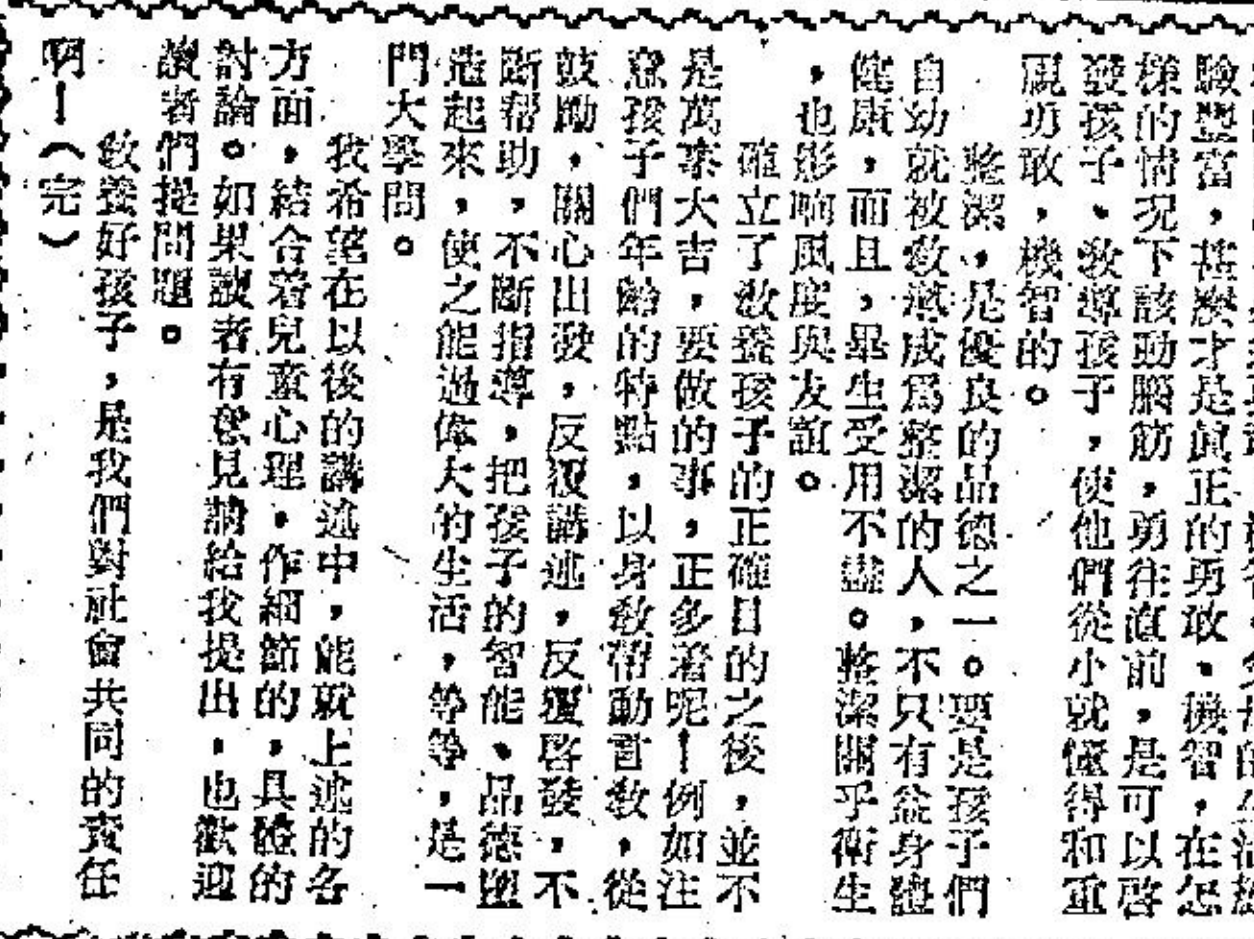 驗豐富，甚麽才是眞正的勇敢、機智，在怎
樣的情况下該動腦筋，勇往直前，是可以啓
發孩子、敎導孩子，使他們從小就懂得和重
視勇敢，機智的。
整潔，是優良的品德之一。要是孩子們
自幼就被敎養成爲整潔的人，不只有益身體
健康，而且，畢生受用不盡。整潔關乎衛生
，也影响風度與友誼。
確立了敎養孩子的正確目的之後，並不
是萬事大吉，要做的事，正多着呢！例如注
意孩子們年齡的特點，以身敎帶動言敎，從
鼓勵，關心出發，反覆講述，反覆啓發，不
斷帮助，不斷指導，把孩子的智能、品德塑
造起來，使之能過偉大的生活，等等，是一
門大學問。
我希望在以後的講述中，能就上述的各
方面，結合着兒童心理，作細節的，具體的
討論。如果讀者有意見請給我提出，也歡迎
讀者們提問題。
敎養好孩子，是我們對社會共同的責任
啊！（完）